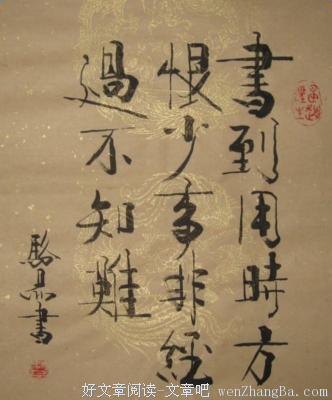 書到用時方
恨少事非經
過不知難
駱恭書
好文章阅读-文章吧 wenZhangBa.com